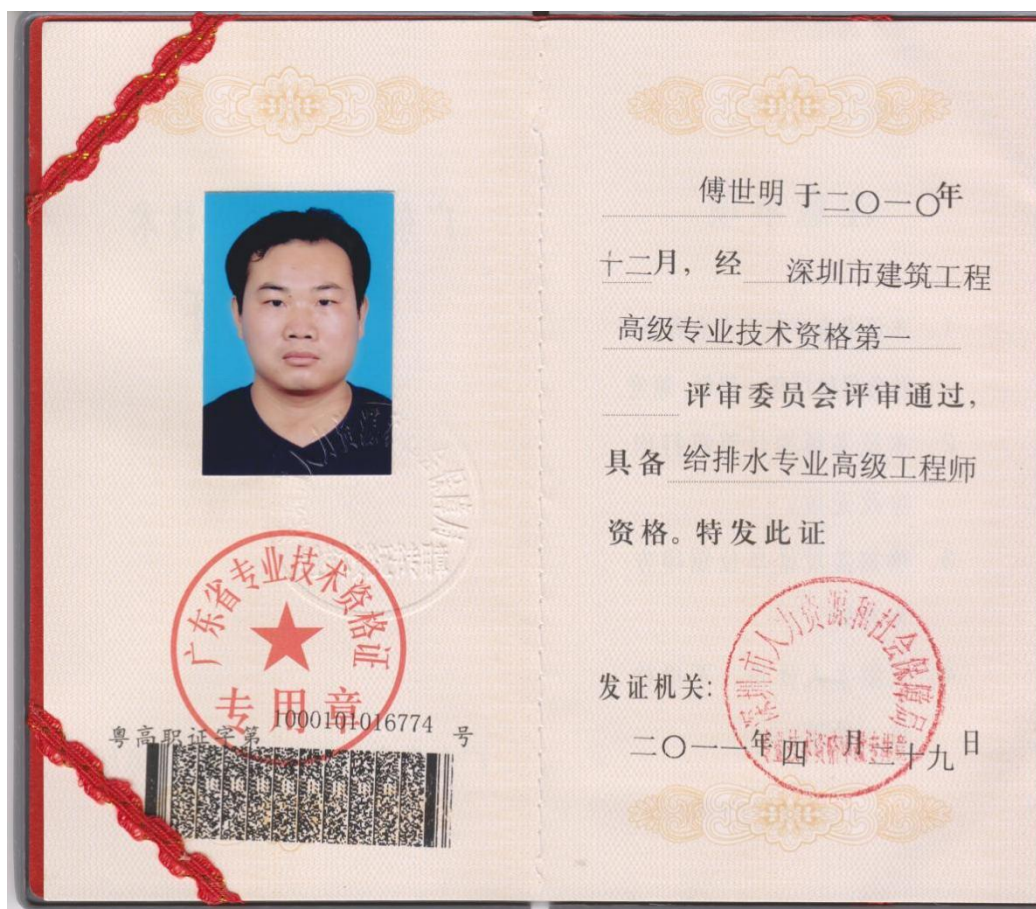 广东省专业技术资格证
专用章
粤高职证字第1000101016774号
傅世明于二〇一〇年
十二月，经深圳市建筑工程
高级专业技术资格第一
评审委员会评审通过，
具备给排水专业高级工程师
资格。特发此证
深圳市人力资源和社会保障局
发证机关：
二〇一一年四月二十九日